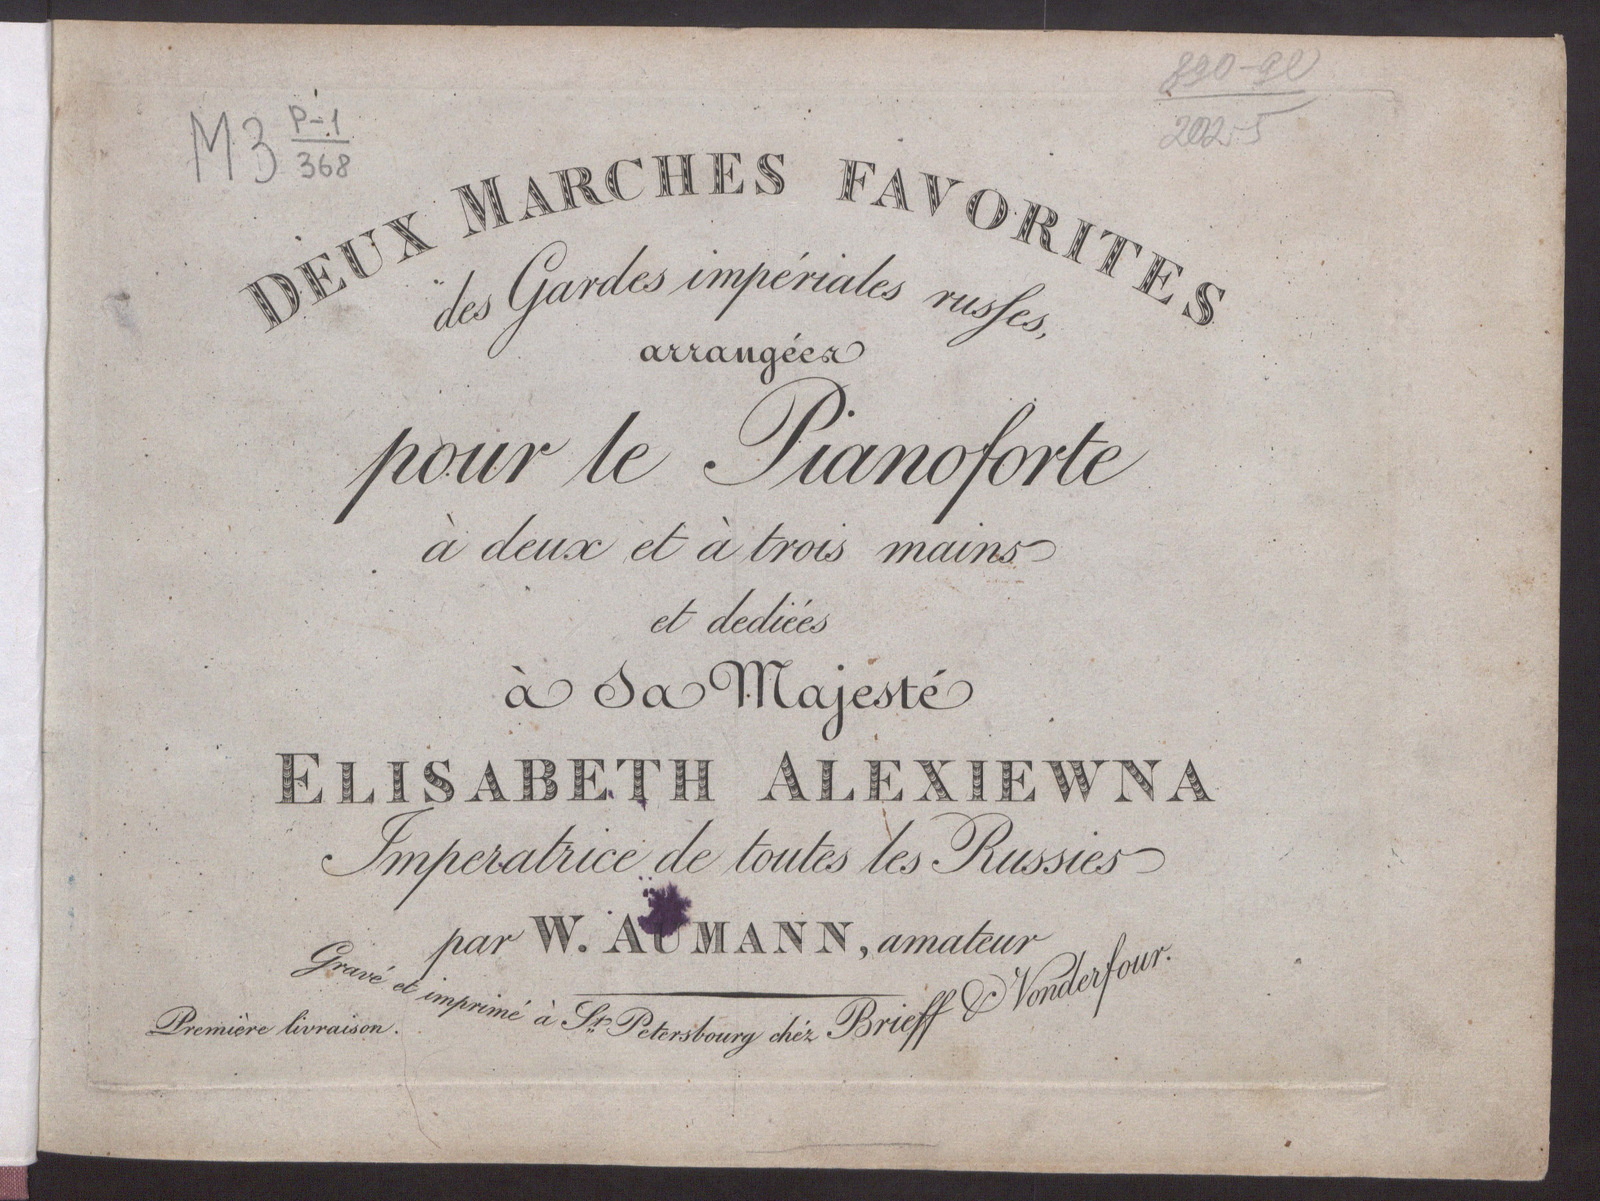 МЗ Р-1
368
DEUX MARCHES FAVORITES
des Gardes impériales russes,
arrangées
pour le Pianoforte
à deux et à trois mains
et dediées
à Sa Majesté
ELISABETH ALEXIEWNA
Imperatrice de toutes les Russies
par W. AUMANN, amateur
Gravé et imprimé à St. Petersbourg chéz Brieff & Vonderfour.
Première livraison.